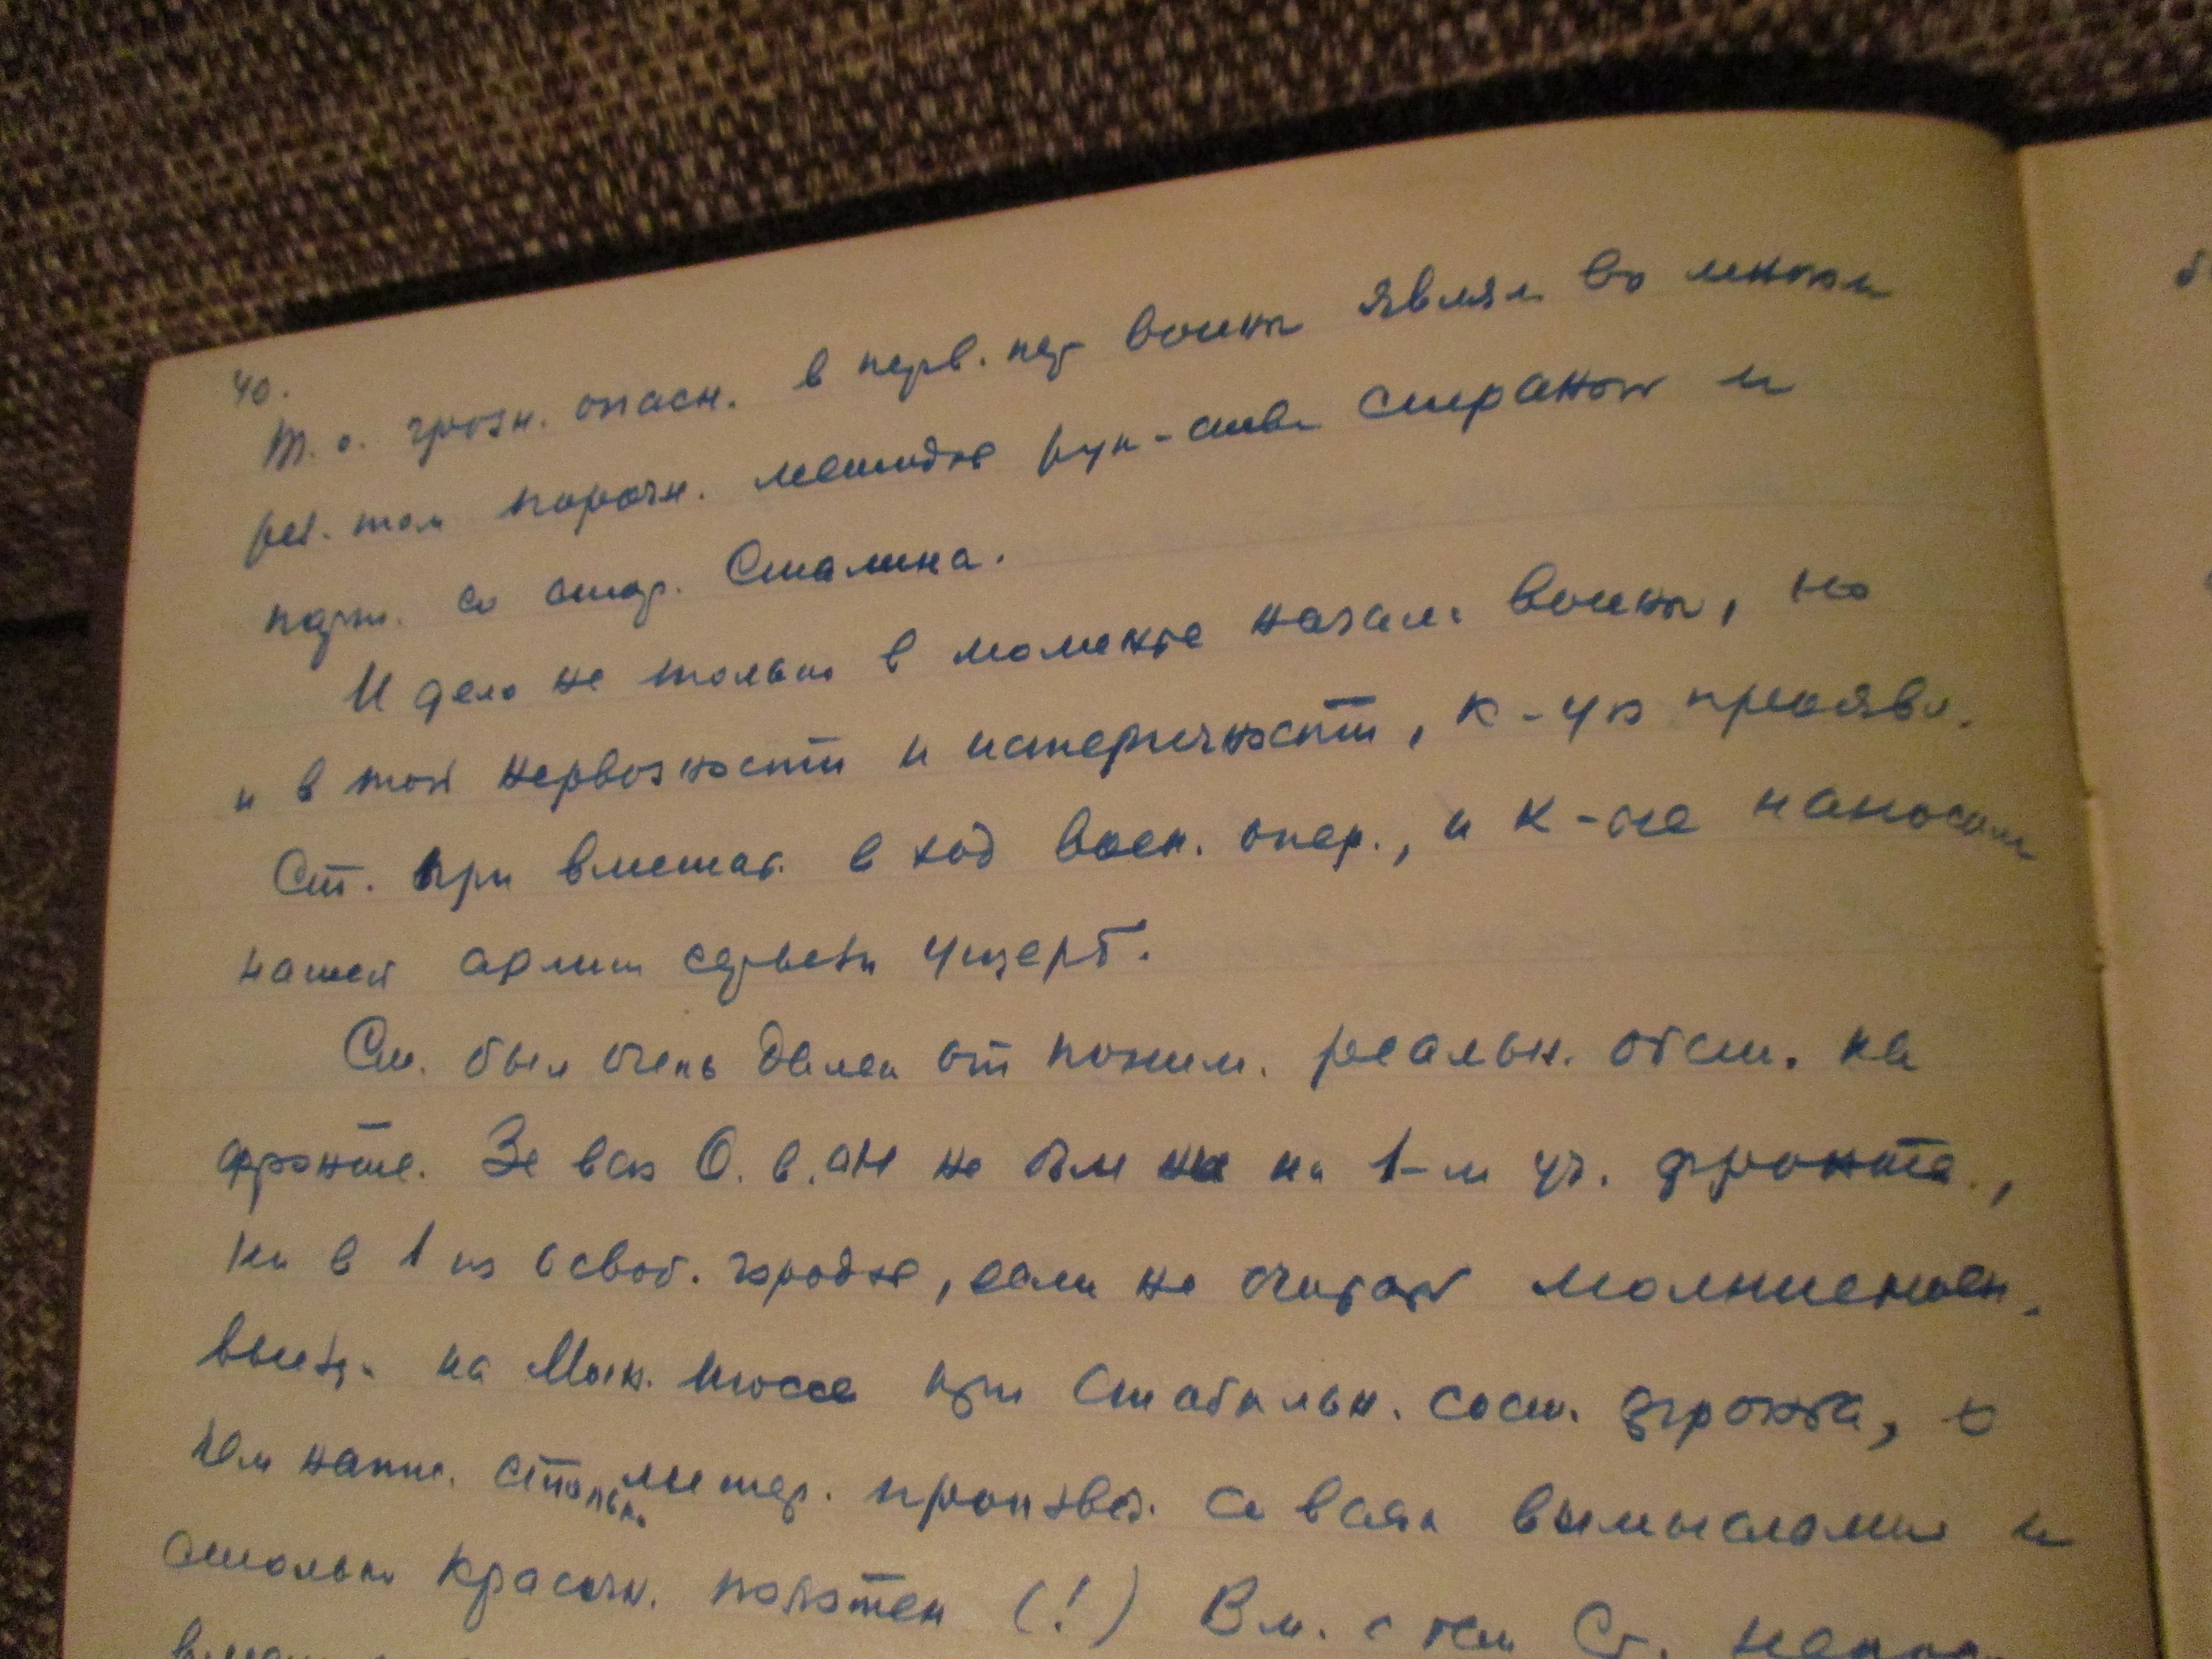 40.
Т. о. грозн. опасн. в перв. пер войны явля во многом
рез. том порочн. методов рук-ства страной и
парт. со стор. Сталина.
И дело не только в моменте начала войны, но
и в той нервозности и истеричности, к-ую проявл.
Ст. при вмешат. в ход воен. опер., и к-ые наносили
нашей армии серьезн ущерб.
Ст. был очень далек от поним. реальн. обст. на
фронте. За всю О. в. он не был ни на 1-м уч. фронта,
ни в 1 из освоб. городов, если не считать молниеносн.
выезд. на Мож. шоссе при стабильн. сост. фронта, о
чем напис. столько литер. произвед. со всяк вымыслами и
столько красочн. полотен (!) Вм. с тем Ст. непос